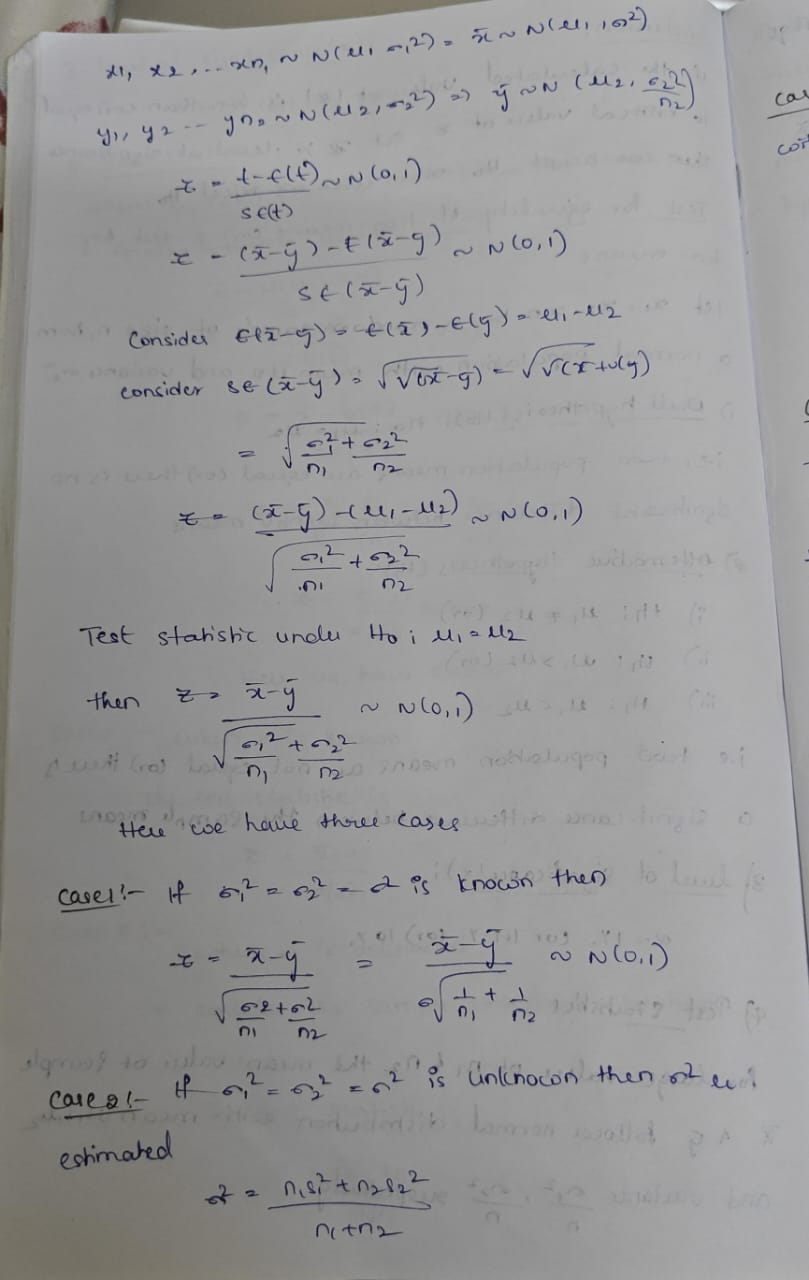 x1, x2, ... xn, ~ N(μ1 σ1²) = x̄ ~ N(μ1, σ²)
y1, y2 -- yn2 ~ N(μ2, σ2²) => ȳ ~ N (μ2, σ2²/n2)
z = t-E(t)/SE(t) ~ N(0,1)
z = (x̄-ȳ)-E(x̄-y)/SE(x̄-ȳ) ~ N(0,1)
Consider E(x̄-ȳ) = E(x̄)-E(ȳ) = μ1-μ2
consider SE(x̄-ȳ) = √V(x̄-ȳ) = √V(x̄+v(y)
= √σ1²/n1 + σ2²/n2
z = (x̄-ȳ)-(μ1-μ2)/√σ1²/n1 + σ2²/n2 ~ N(0,1)
Test statistic under H0 ; μ1=μ2
then z = x̄-ȳ/√σ1²/n1 + σ2²/n2 ~ N(0,1)
Here we have three cases
case1:- If σ1² = σ2² = σ² is known then
z = x̄-ȳ/√σ2/n1 + σ2/n2 = x̄-ȳ/σ√1/n1 + 1/n2 ~ N(0,1)
case2:- If σ1² = σ2² = σ² is unknown then σ²
estimated
σ² = n1s1² + n2s2²/n1+n2
cas